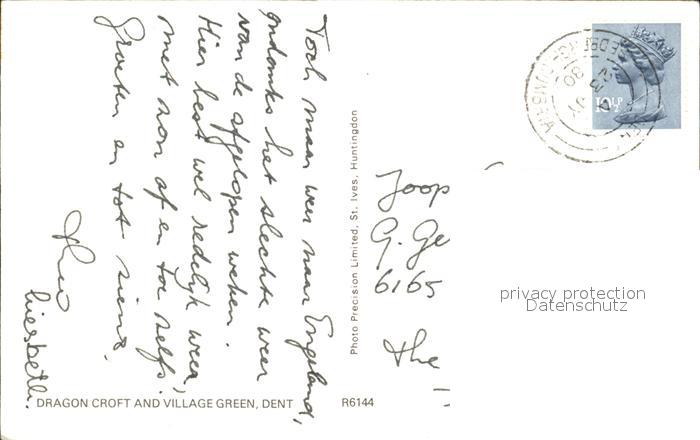 Toch maar weer naar Engeland,
ondanks het slechte weer
van de afgelopen weken.
Hier best wel redelijk weer,
met zon af en toe zelfs.
Groeten en tot ziens,
Theo
Liesbeth.
Photo Precision Limited, St. Ives, Huntingdon
10½P
SEDBERGH CUMBRIA
80
Joop
G. Ge
6165
the
privacy protection
Datenschutz
DRAGON CROFT AND VILLAGE GREEN, DENT
R6144